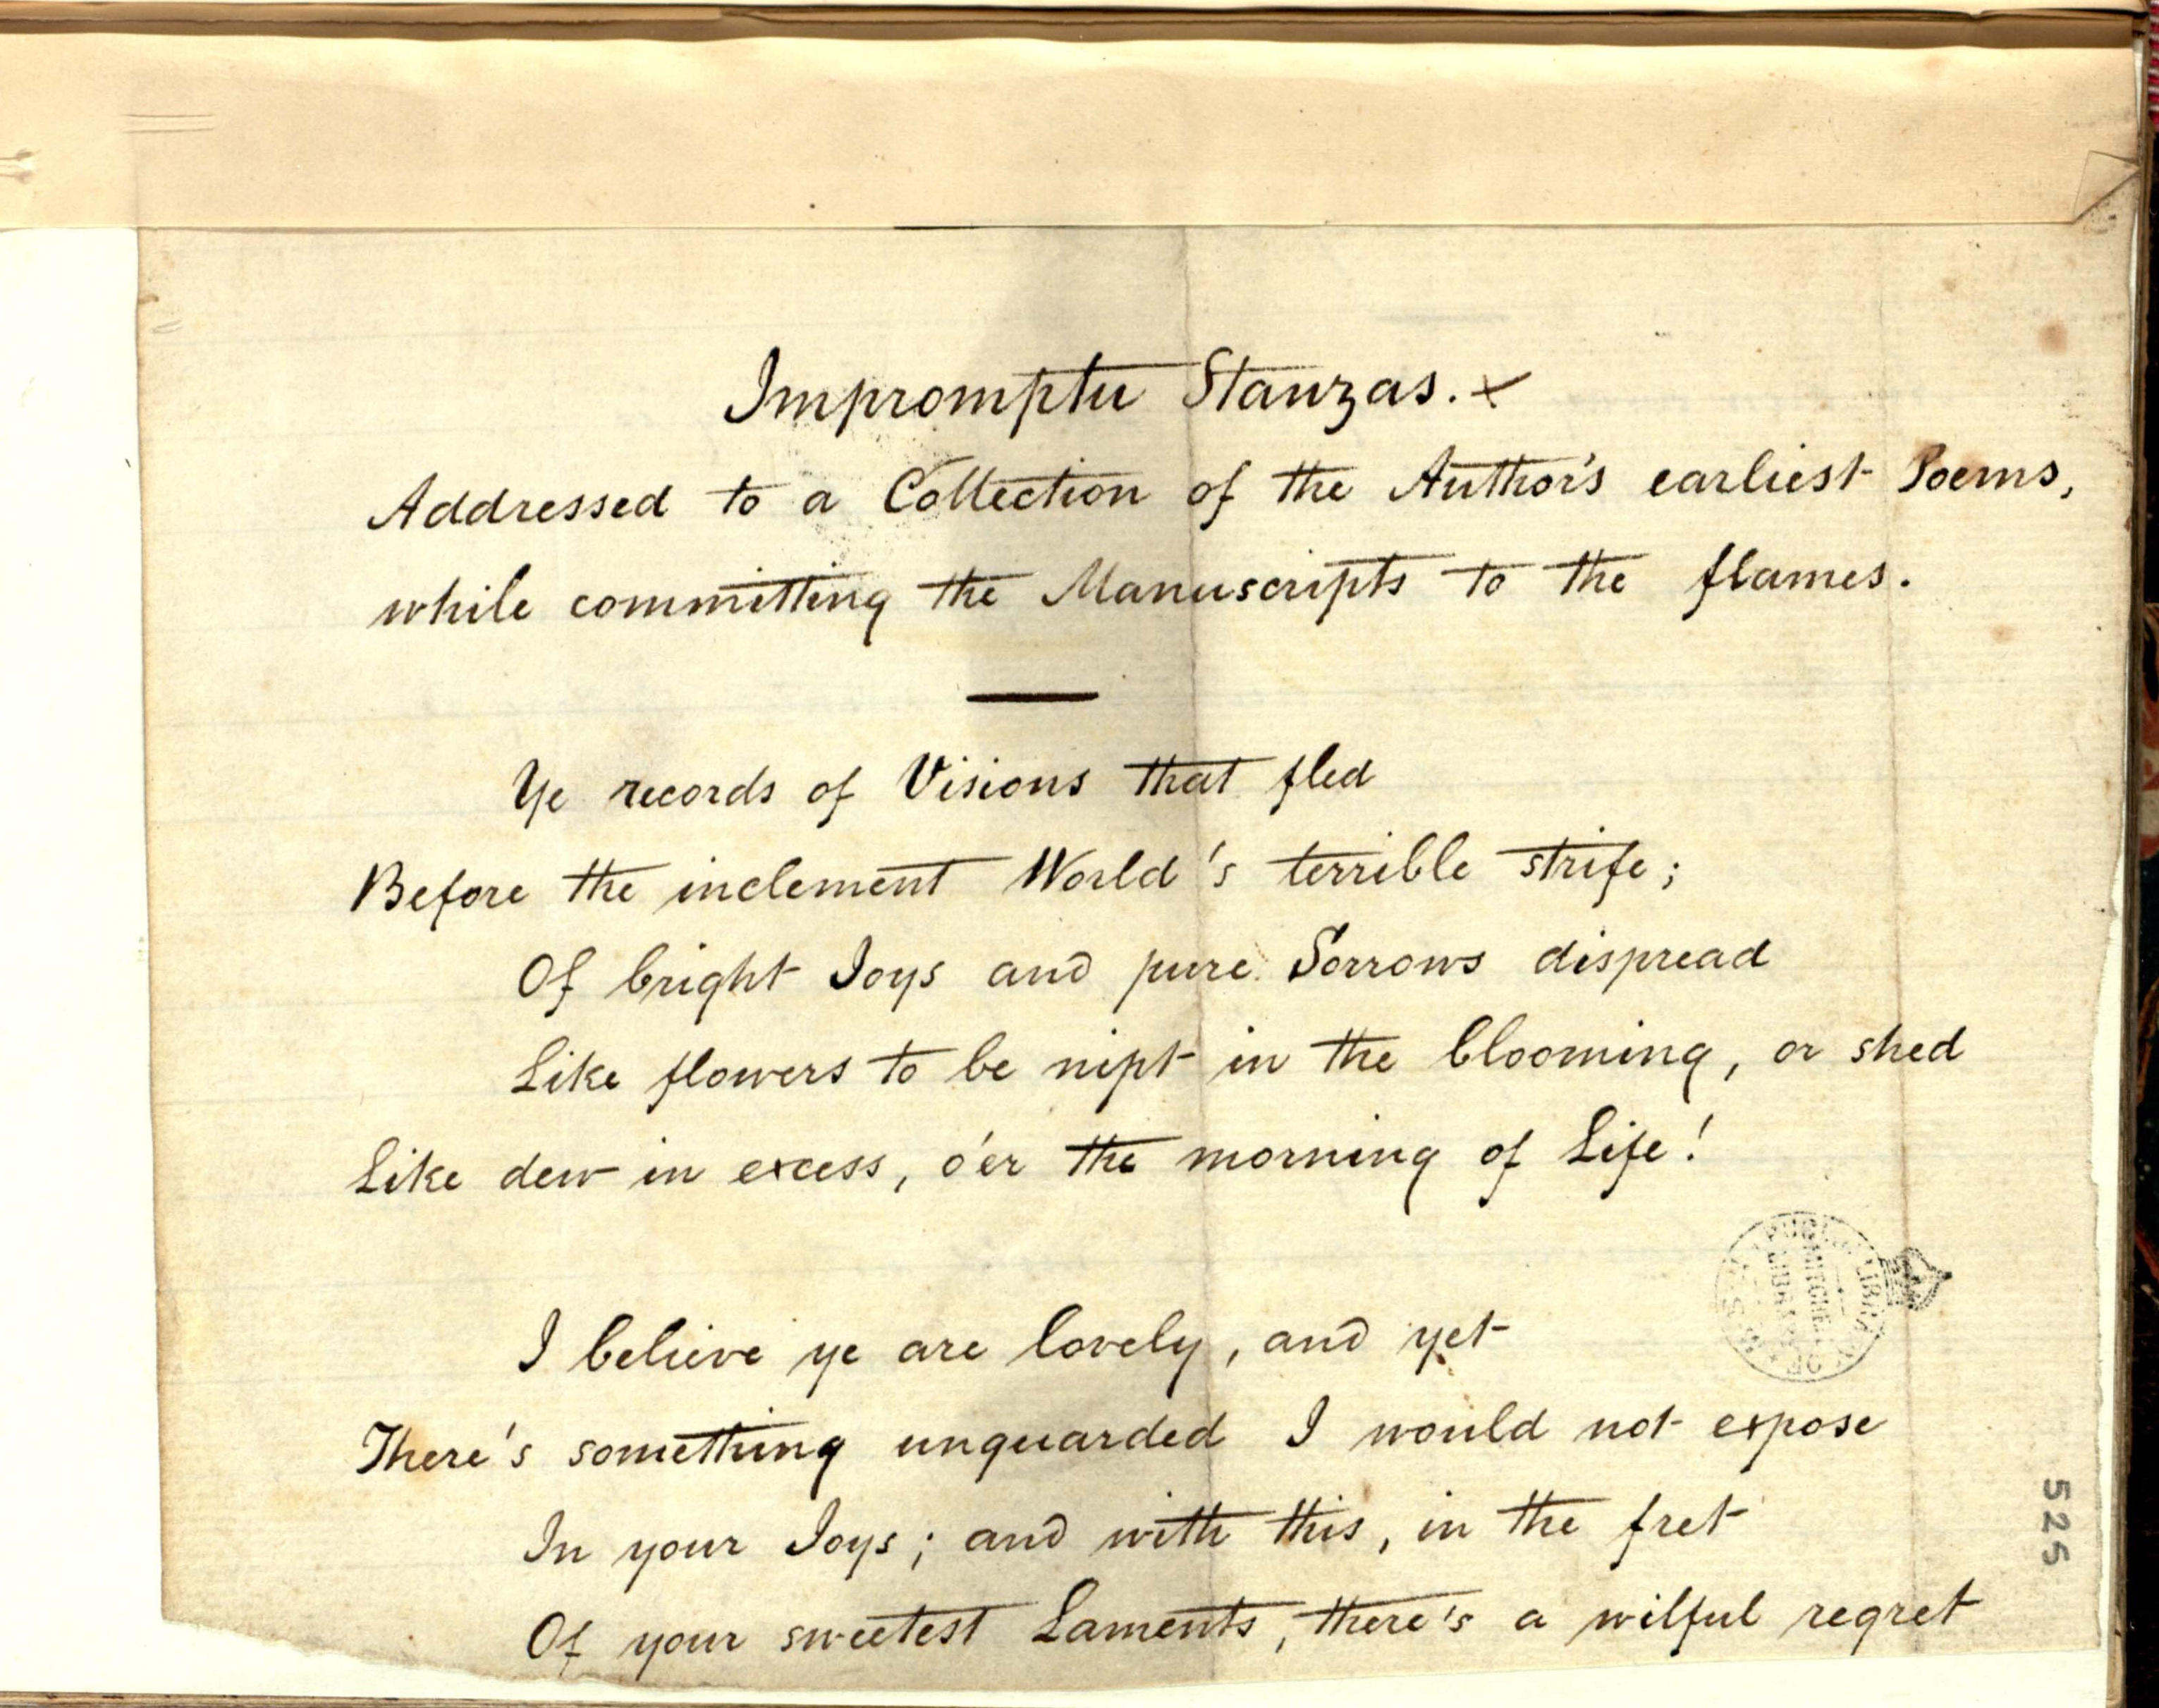 Impromptu Stanzas. x
Addressed to a Collection of the Author's earliest Poems,
while committing the Manuscripts to the flames.
Ye records of Visions that fled
Before the inclement World's terrible strife;
Of bright Joys and pure Sorrows dispread
Like flowers to be nipt in the blooming, or shed
Like dew in excess, o'er the morning of Life!
I believe ye are lovely, and yet
There's something unguarded I would not expose
In your Joys; and with this, in the fret
Of your sweetest Laments, there's a wilful regret
PUBLIC LIBRARY OF N.S.W.
MITCHELL
LIBRARY
525